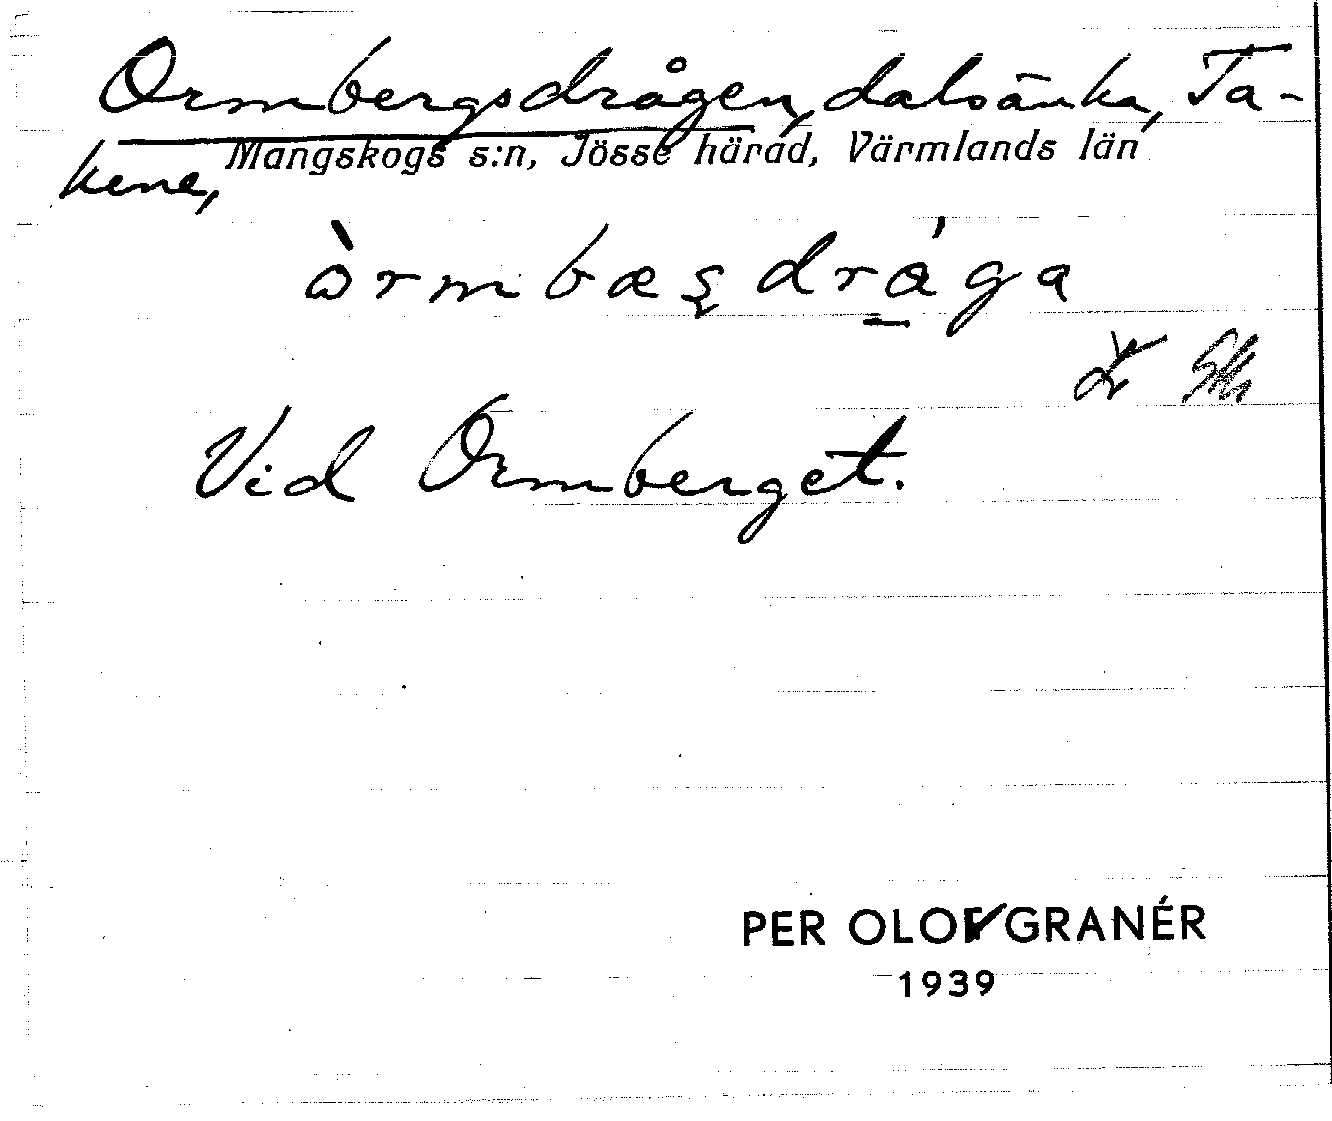 Ormbergsdrågen, dalsänka, Ta-
Mangskogs s:n, Jösse härad, Värmlands län
kene,
òrmbæʂdrága
Vid Ormberget.
PER OLOF GRANÉR
1939